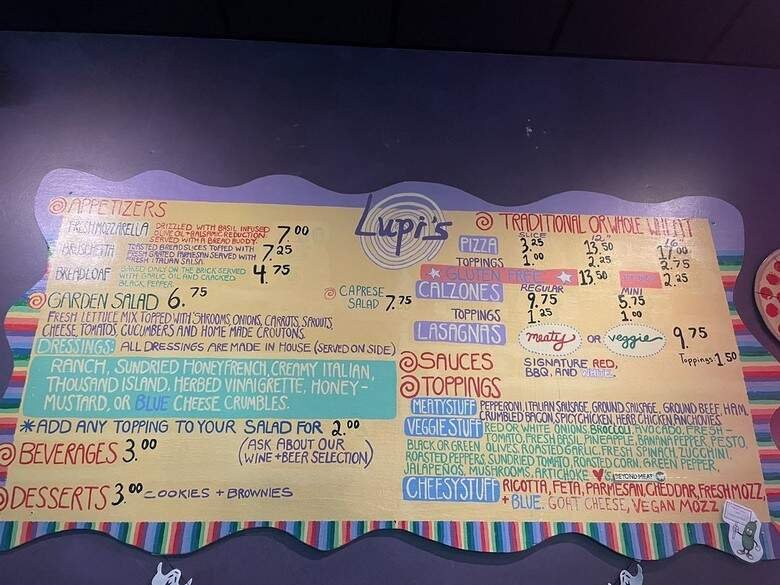 Lupi's
APPETIZERS
FRESH MOZZARELLA DRIZZLED WITH BASIL INFUSED 7.00
OLIVE OIL + BALSAMIC REDUCTION.
SERVED WITH A BREAD BUDDY.
BRUSCHETTA TOASTED BREAD SLICES TOPED WITH 7.25
FRESH GRATED PARMESAN SERVED WITH
FRESH ITALIAN SALSA.
BREADLOAF BAKED DAILY ON THE BRICK SERVED 4.75
WITH GARLIC OIL AND CRACKED
BLACK PEPPER.
GARDEN SALAD 6.75
CAPRESE SALAD 7.75
FRESH LETTUCE MIX TOPPED WITH SHROOMS, ONIONS, CARROTS, SPROUTS,
CHEESE, TOMATOS, CUCUMBERS AND HOME MADE CROUTONS.
DRESSINGS: ALL DRESSINGS ARE MADE IN HOUSE (SERVED ON SIDE)
RANCH, SUNDRIED HONEY FRENCH, CREAMY ITALIAN,
THOUSAND ISLAND, HERBED VINAIGRETTE, HONEY-
MUSTARD, OR BLUE CHEESE CRUMBLES.
*ADD ANY TOPPING TO YOUR SALAD FOR 2.00
BEVERAGES 3.00 (ASK ABOUT OUR
WINE + BEER SELECTION)
DESSERTS 3.00 - COOKIES + BROWNIES
TRADITIONAL OR WHOLE WHEAT
SLICE 12" 16"
PIZZA 3.25 13.50 17.00
TOPPINGS 1.00 2.25 2.75
GLUTEN FREE 13.50 2.25
REGULAR MINI
CALZONES 9.75 5.75
TOPPINGS 1.25 1.00
LASAGNAS meaty OR veggie 9.75
Toppings 1.50
SAUCES SIGNATURE RED,
BBQ, AND WHITE
TOPPINGS
MEATY STUFF PEPPERONI, ITALIAN SAUSAGE, GROUND SAUSAGE, GROUND BEEF, HAM,
CRUMBLED BACON, SPICY CHICKEN, HERB CHICKEN, ANCHOVIES
VEGGIE STUFF RED OR WHITE ONIONS, BROCCOLI, AVOCADO, FRESH-
TOMATO, FRESH BASIL, PINEAPPLE, BANANA PEPPER, PESTO,
BLACK OR GREEN OLIVES, ROASTED GARLIC, FRESH SPINACH, ZUCCHINI,
ROASTED PEPPERS, SUNDRIED TOMATO, ROASTED CORN, GREEN PEPPER,
JALAPEÑOS, MUSHROOMS, ARTICHOKE ♥'S, BEYOND MEAT
CHEESY STUFF RICOTTA, FETA, PARMESAN, CHEDDAR, FRESH MOZZ,
+ BLUE. GOAT CHEESE, VEGAN MOZZ